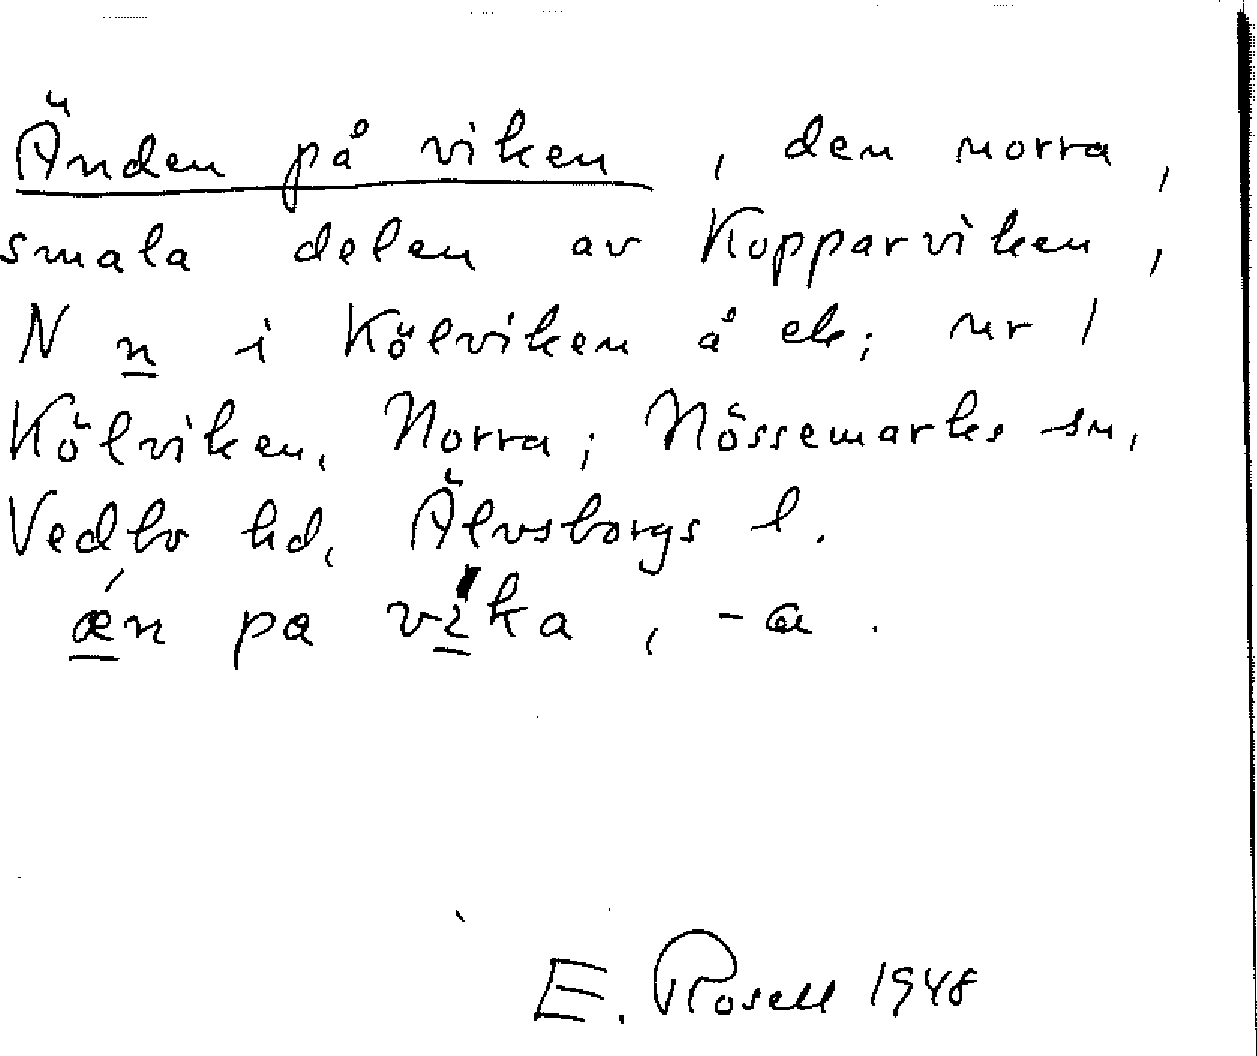 Änden på viken, den norra,
smala delen av Kopparviken,
N n i Kölviken å ek; nr 1
Kölviken, Norra; Nössemarks sn,
Vedbo hd, Älvsborgs l.
ǽn pa víka, -a.
E. Rosell 1948